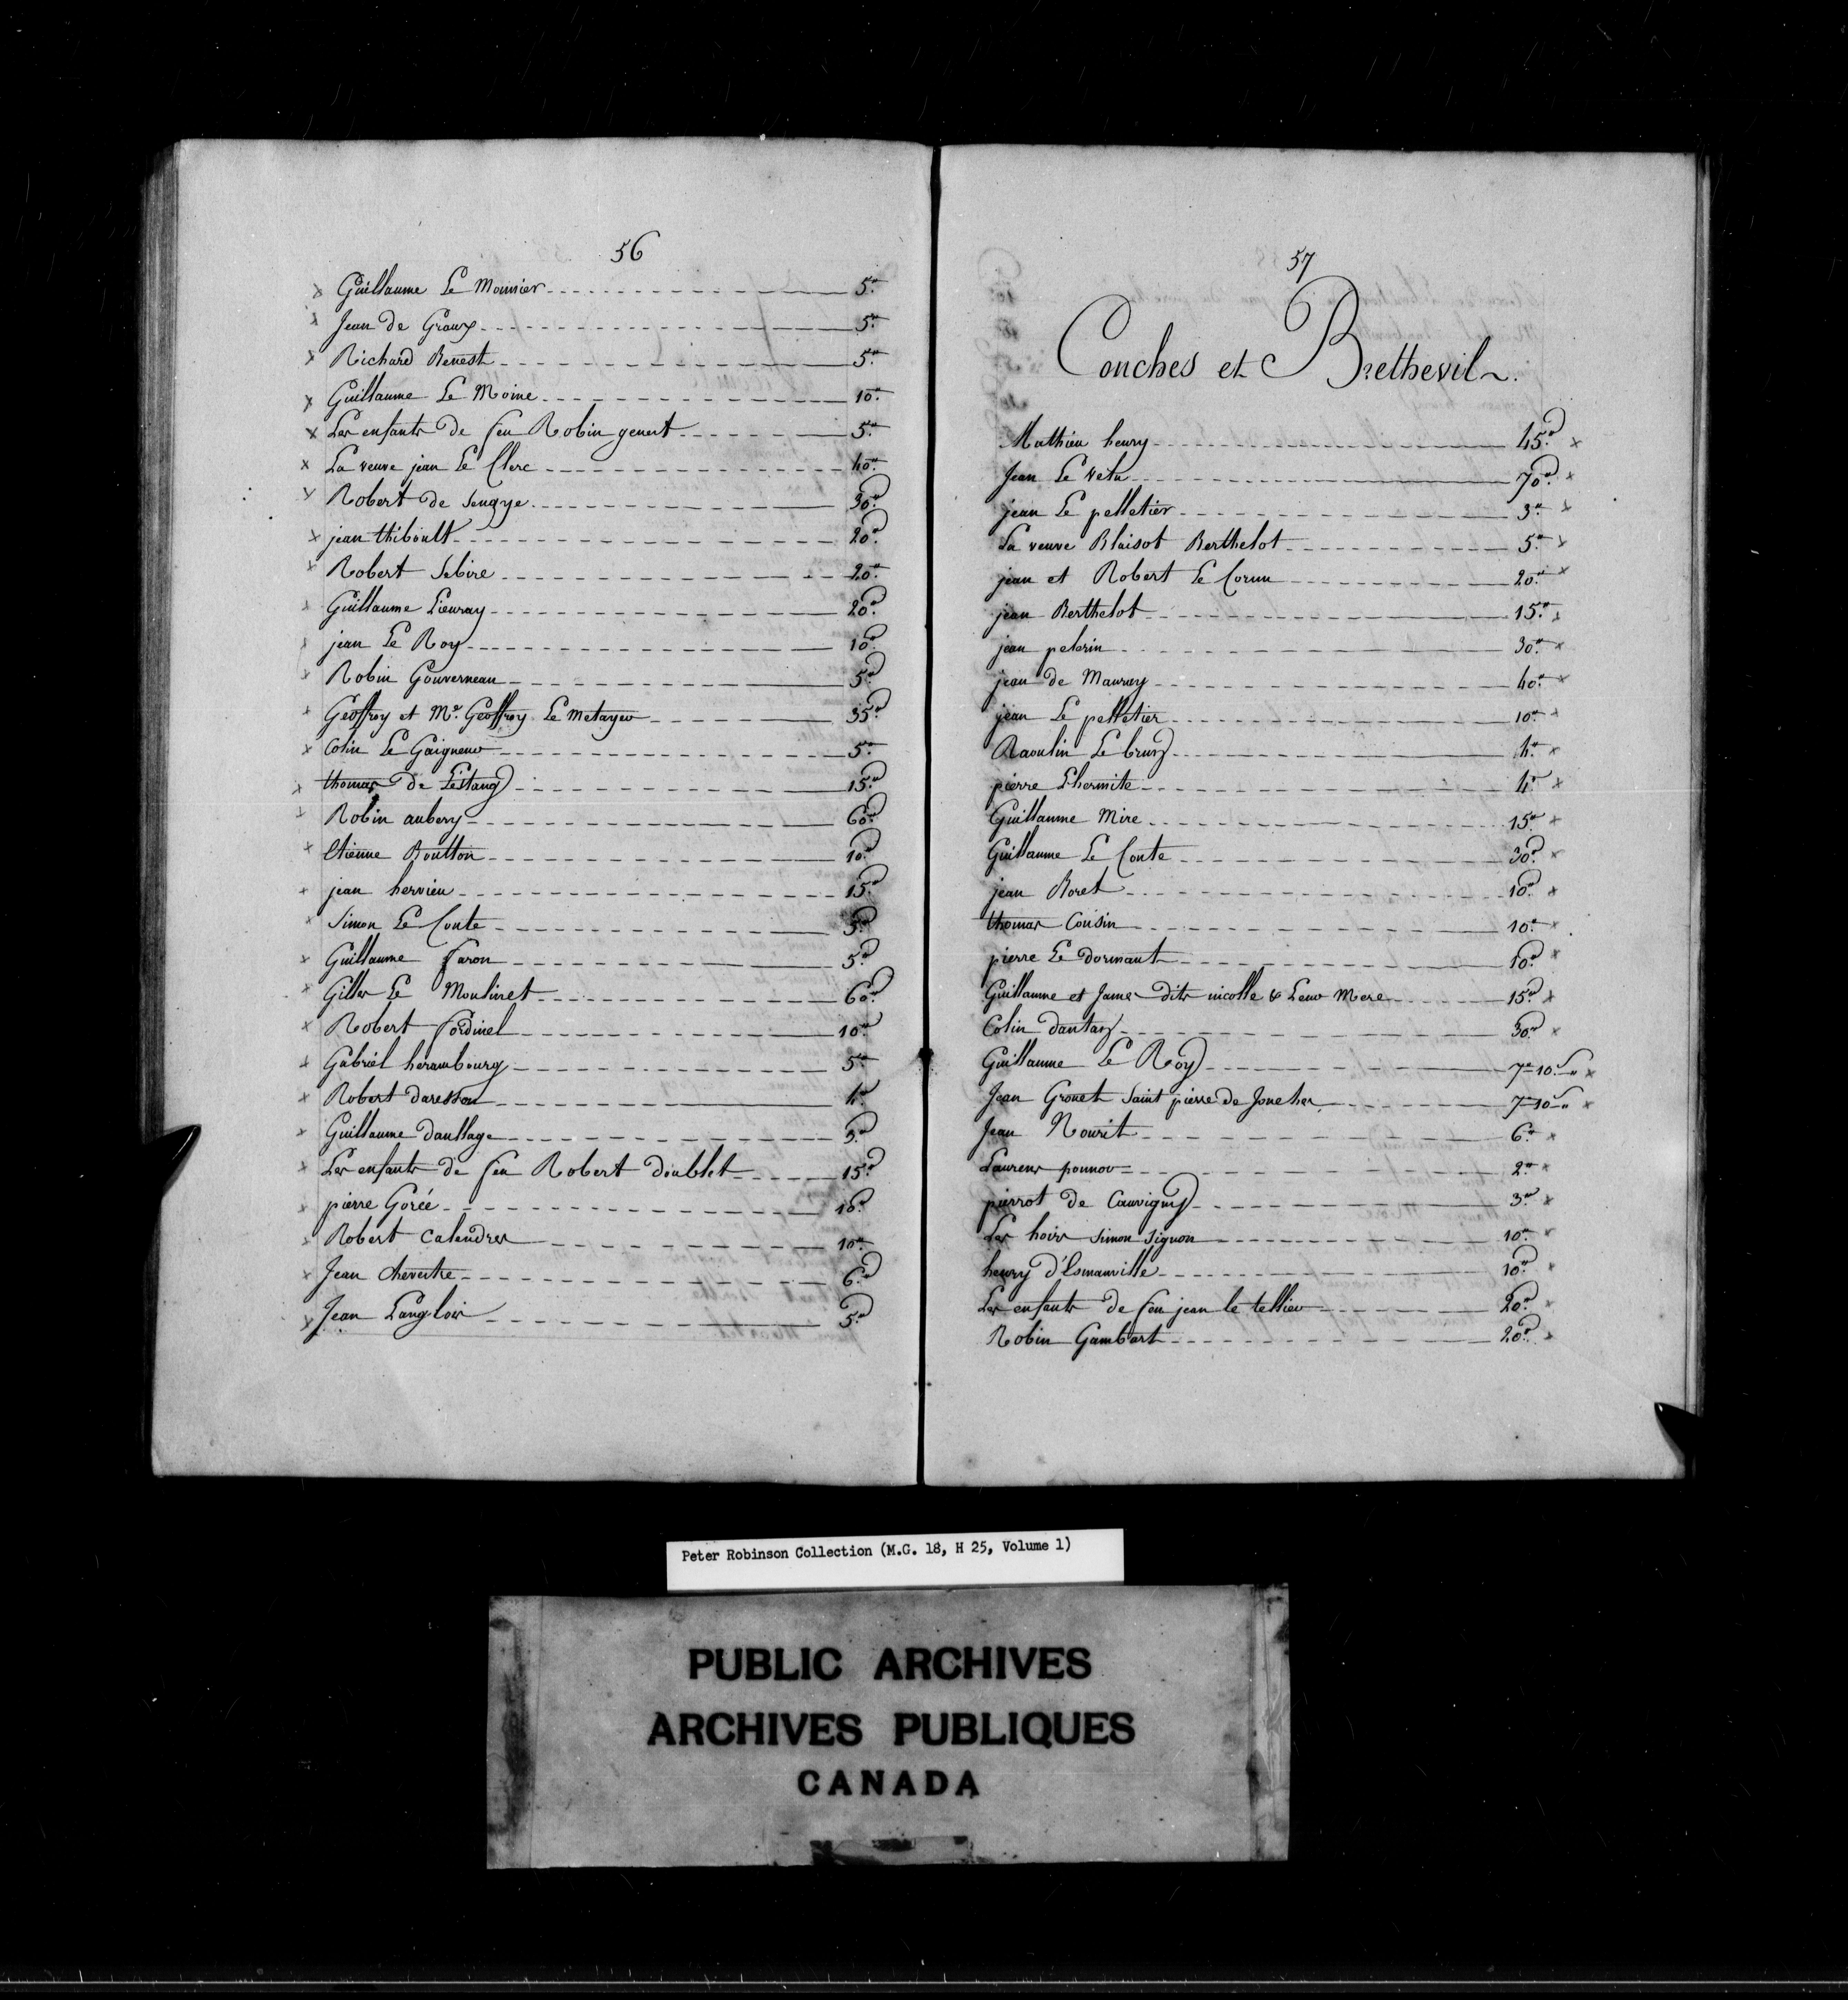 56
x Guillaume Le Mounier 5"
x Jean de Groux 5"
x Richard Benest 5"
x Guillaume Le Moine 10"
x Les enfants de feu Robin genest 5"
x La veuve jean Le Clerc 40"
x Robert de 30"
x jean thiboult 20"
x Robert Sebire 20"
x Guillaume Lieuray 20"
x jean Le Roy 10"
x Robin Gouverneau 5"
x Geoffroy et Mr. Geoffroy Le Metayer 35"
x Colin Le Gaigneur 5"
x thomas de L'Estang 15"
x Robin aubery 60"
x Etienne Boutton 10"
x jean hervieu 15"
x Simon Le Conte 5"
x Guillaume faron 5"
x Gilles Le Moulinet 60"
x Robert fordinel 10"
x Gabriel herambourg 5"
x Robert 4"
x Guillaume daullage 5"
x Les enfants de feu Robert doublet 15"
x pierre Gorée 10"
x Robert Calendres 10"
x Jean chevestre 6"
x Jean Langlois 5"
57
Conches et Brethevil
Mathieu henry 45" x
Jean Le Velu 70" x
jean Le pelletier 3" x
La veuve Blaisot Berthelot 5" x
jean et Robert Le Cornu 20" x
jean Berthelot 15" x
jean pelerin 30" x
jean de Mauray 40" x
jean Le pelletier 10" x
Raoulin Le brun 4" x
pierre Lhermite 4" x
Guillaume Mire 15" x
Guillaume Le Conte 30" x
jean Boret 10" x
thomas Cousin 10" x
pierre Le dormant 10" x
Guillaume et James dits nicolle & Leur Mere 15" x
Colin dantan 30" x
Guillaume Le Roy 7" 10s " x
Jean Grouet Saint pierre de Jonches 7" 10s " x
Jean Nourit 6" x
Laurens ponnor 2" x
pierrot de Cauvigny 3" x
Les hoirs Simon Signon 10" x
henry d'Esmanville 10" x
Les enfants de feu jean le tellier 20" x
Robin Gambart 20" x
Peter Robinson Collection (M.G. 18, H 25, Volume 1)
PUBLIC ARCHIVES
ARCHIVES PUBLIQUES
CANADA